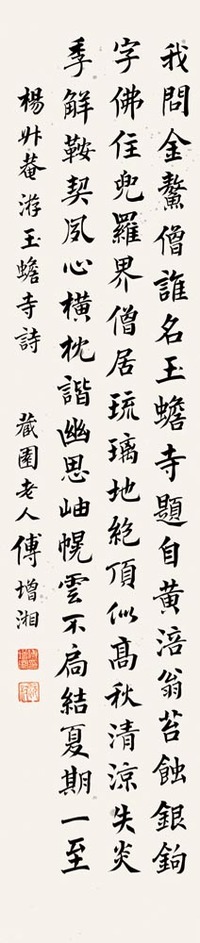 我問金鰲僧誰名玉蟾寺題自黃涪翁苔蝕銀鉤
字佛住兜羅界僧居琉璃地絶頂似高秋清涼失炎
季解鞍契夙心橫枕諧幽思岫幌雲不扃結夏期一至
楊升菴游玉蟾寺詩 藏園老人傅增湘